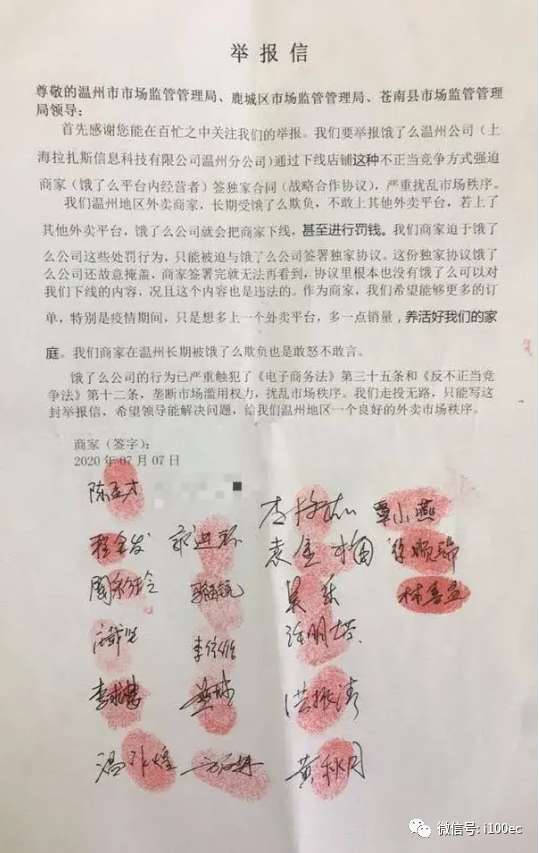 举报信
尊敬的温州市市场监管管理局、鹿城区市场监督管理局、苍南县市场监管管理
局领导：
首先感谢您能在百忙之中关注我们的举报。我们要举报饿了么温州公司（上
海拉扎斯信息科技有限公司温州分公司）通过下线店铺这种不正当竞争方式强迫
商家（饿了么平台内经营者）签独家合同（战略合作协议），严重扰乱市场秩序。
我们温州地区外卖商家，长期受饿了么欺负，不敢上其他外卖平台，若上了
其他外卖平台，饿了么公司就会把商家下线，甚至进行罚钱。我们商家迫于饿了
么公司这些处罚行为，只能被迫与饿了么公司签署独家协议。这份独家协议饿了
么公司还故意掩盖，商家签署完就无法再看到，协议里根本也没有饿了么可以对
我们下线的内容，况且这个内容也是违法的。作为商家，我们希望能够更多的订
单，特别是疫情期间，只是想多上一个外卖平台，多一点销量，养活好我们的家
庭。我们商家在温州长期被饿了么欺负也是敢怒不敢言。
饿了么公司的行为已严重触犯了《电子商务法》第三十五条和《反不正当竞
争法》第十二条，垄断市场滥用权力，扰乱市场秩序。我们走投无路，只能写这
封举报信，希望领导能解决问题，给我们温州地区一个良好的外卖市场秩序。
商家（签字）：
2020年07月07日
覃小燕
袁金梅
洪振涛
黄秋月
微信号: i100ec